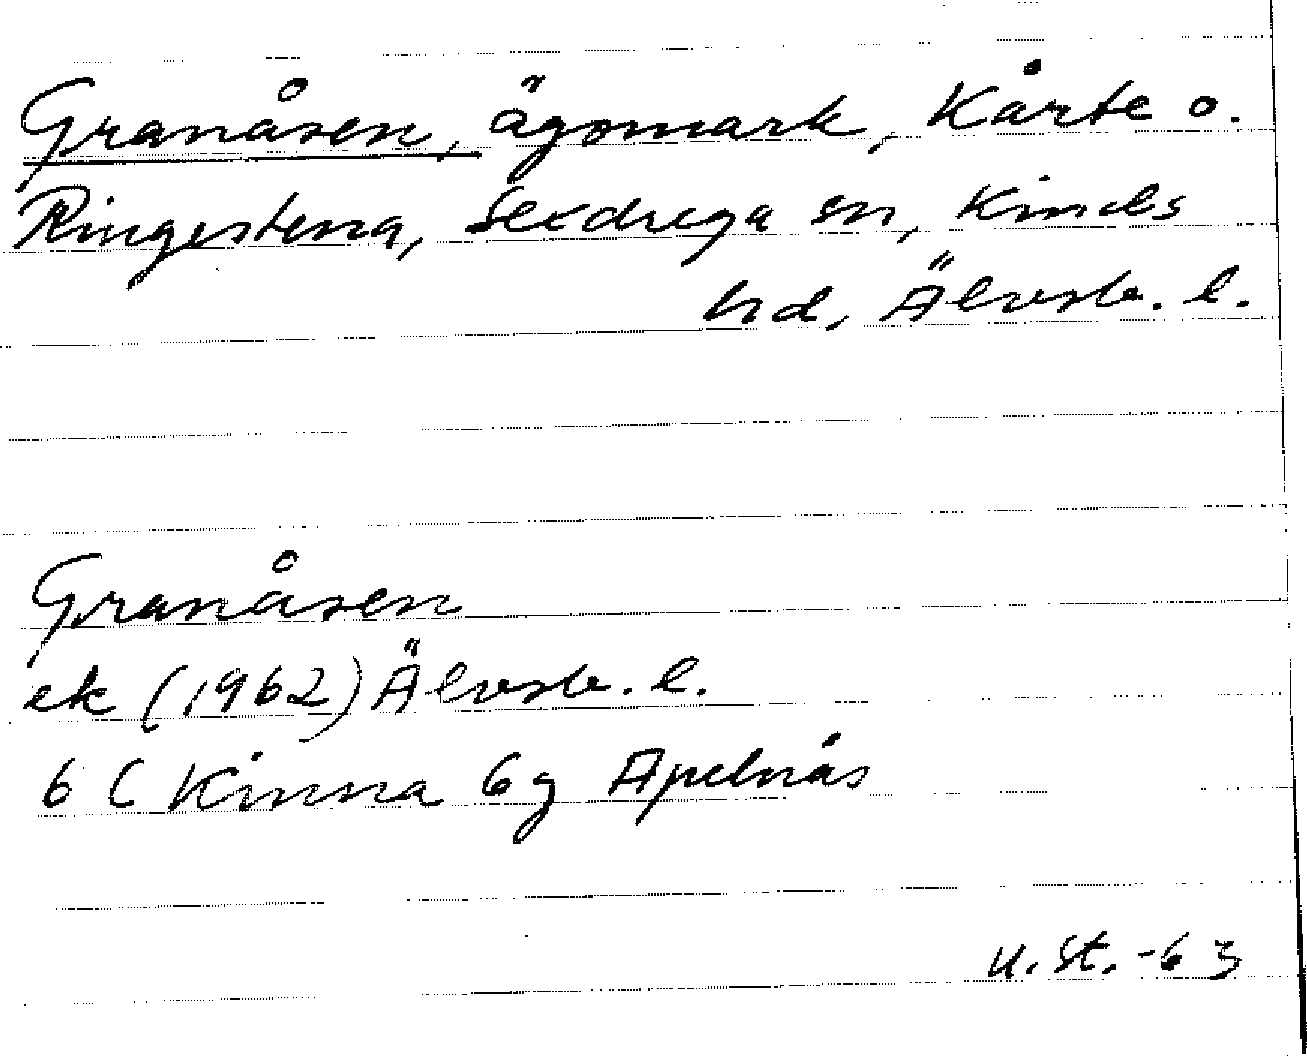 Granåsen, ägomark, Kårte o.
Ringestena, Sexdrega sn, Kinds
hd, Älvsb. l.
Granåsen
ek (1962) Älvsb. l.
6 C Kinna 6g Apelnås
U. St. -63